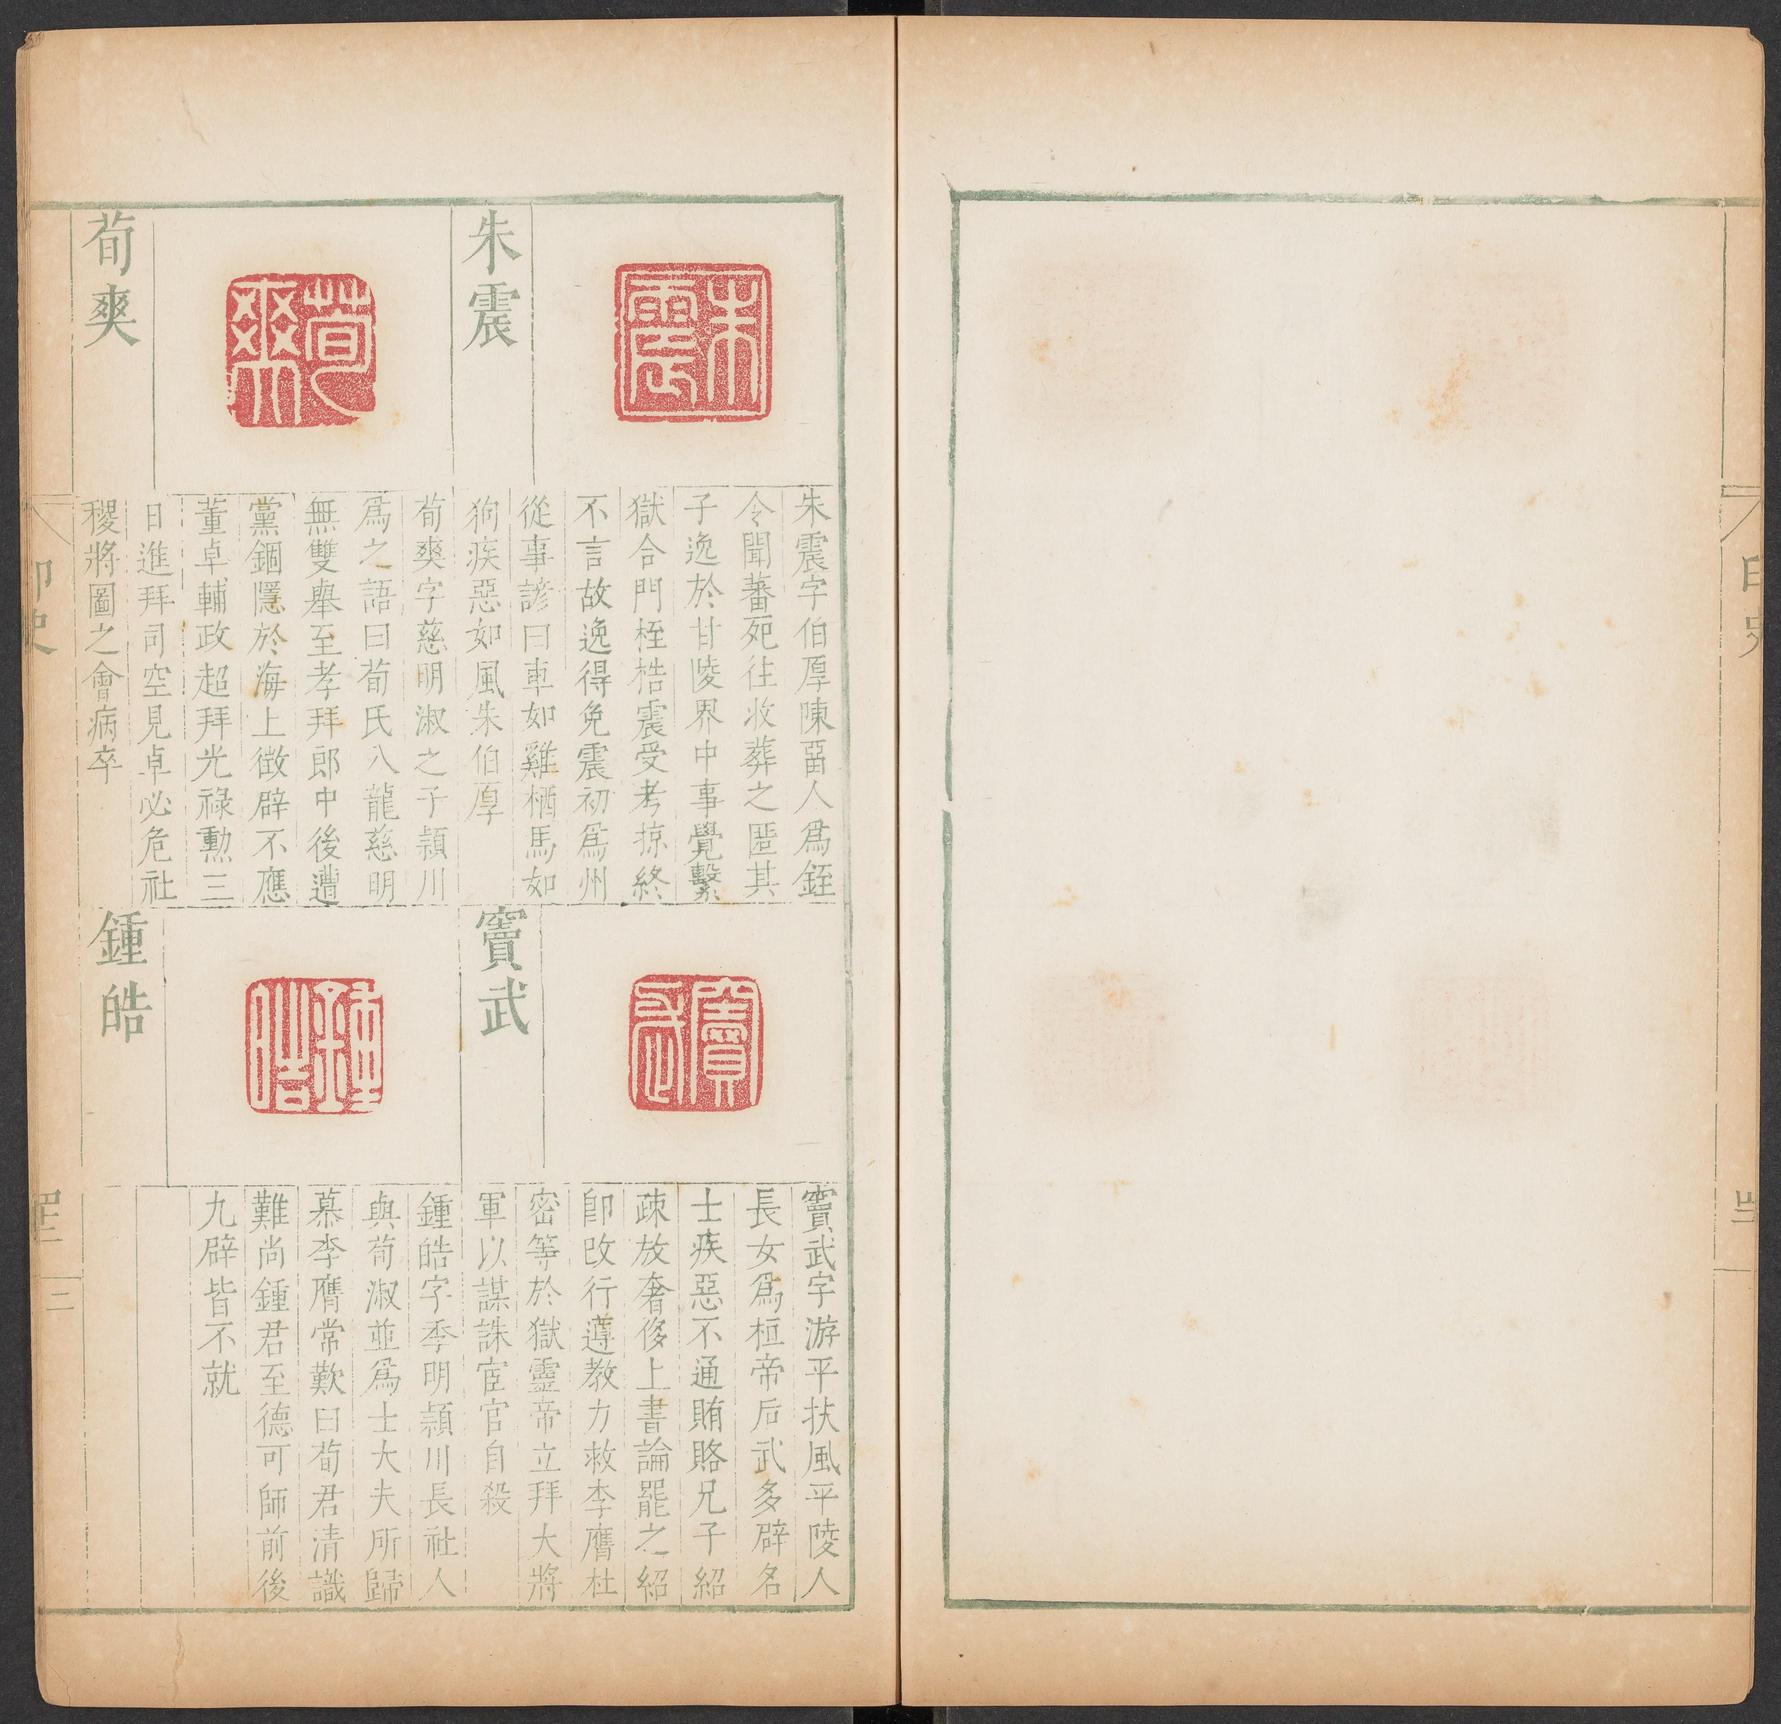 朱震
朱震
朱震字伯厚陳畱人爲銍
令聞蕃死往收葬之匿其
子逸於甘陵界中事覺繫
獄合門桎梏震受考掠終
不言故逸得免震初爲州
從事諺曰車如雞栖馬如
狗疾惡如風朱伯厚
荀爽
荀爽
荀爽字慈明淑之子潁川
爲之語曰荀氏八龍慈明
無雙舉至孝拜郎中後遭
黨錮隱於海上徵辟不應
董卓輔政超拜光祿勲三
日進拜司空見卓必危社
稷將圖之會病卒
竇武
竇武
竇武字游平扶風平陵人
長女爲桓帝后武多辟名
士疾惡不通賄賂兄子紹
疎放奢侈上書論罷之紹
卽改行遵教力救李膺杜
密等於獄靈帝立拜大將
軍以謀誅宦官自殺
鍾皓
鍾皓
鍾皓字季明潁川長社人
與荀淑並爲士大夫所歸
慕李膺常歎曰荀君清識
難尚鍾君至德可師前後
九辟皆不就
印史
三